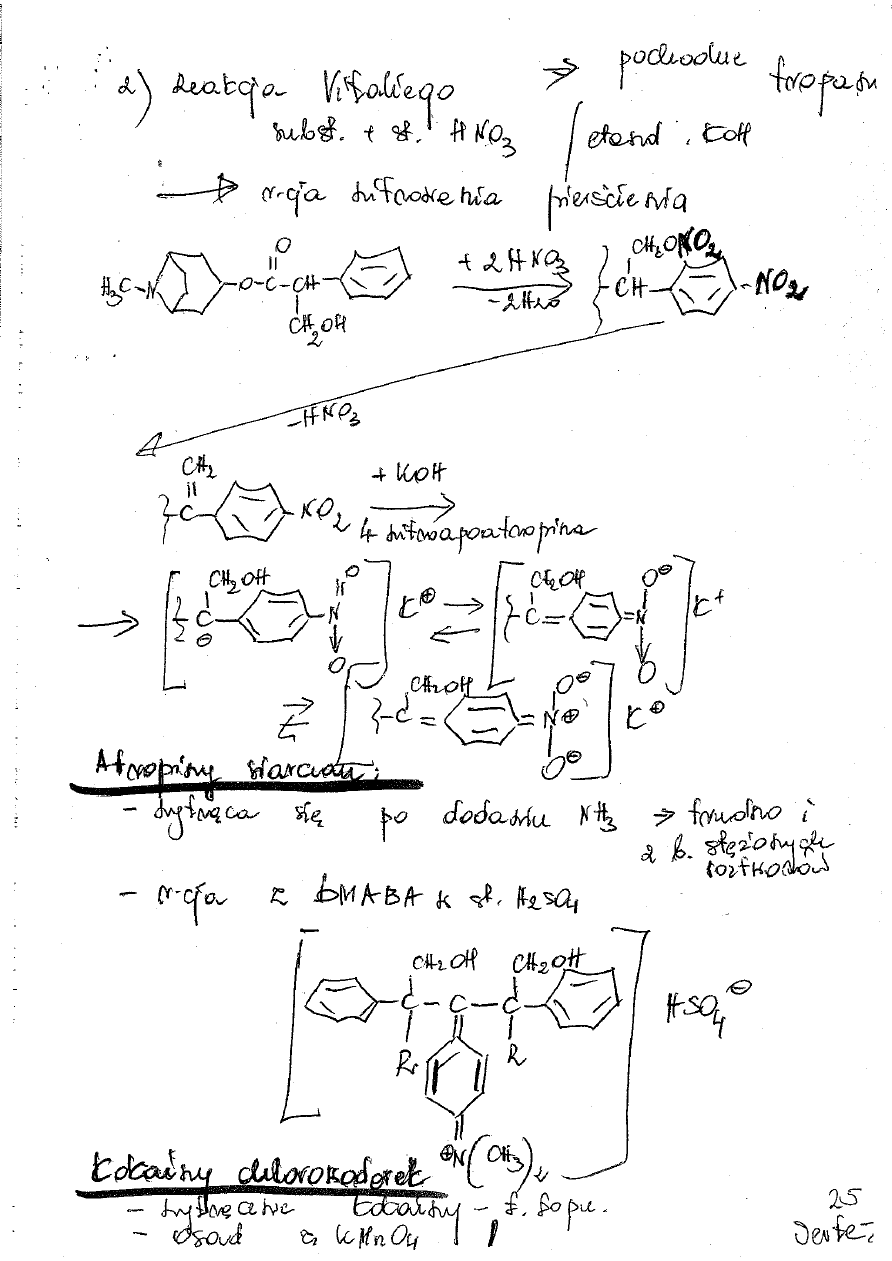 2) Reakcja Vitaliego → pochodne tropanu
subst. + st. HNO3 / etanol. KOH
→ r-cja nitrowania pierścienia
H3C-N -O-C-CH- O CH2OH + 2HNO3 -2H2O CH2ONO2 CH -NO2
-HNO3
CH2 C -NO2 + KOH 4 nitroapoatropina
CH2OH C ⊖ N O O K⊕ CH2OH C N O⊖ O K+
CH2OH C N⊕ O⊖ O⊖ K⊕
Atropiny siarczan:
- wytrąca się po dodaniu NH3 → trudno i
z b. stężonych
roztworów
- r-cja z DMABA w st. H2SO4
CH2OH CH2OH
C - C - C HSO4⊖
R R
⊕N(CH3)2
Kokainy chlorowodorek
- wytrącanie kokainy - t. topn.
- osad z KMnO4
25